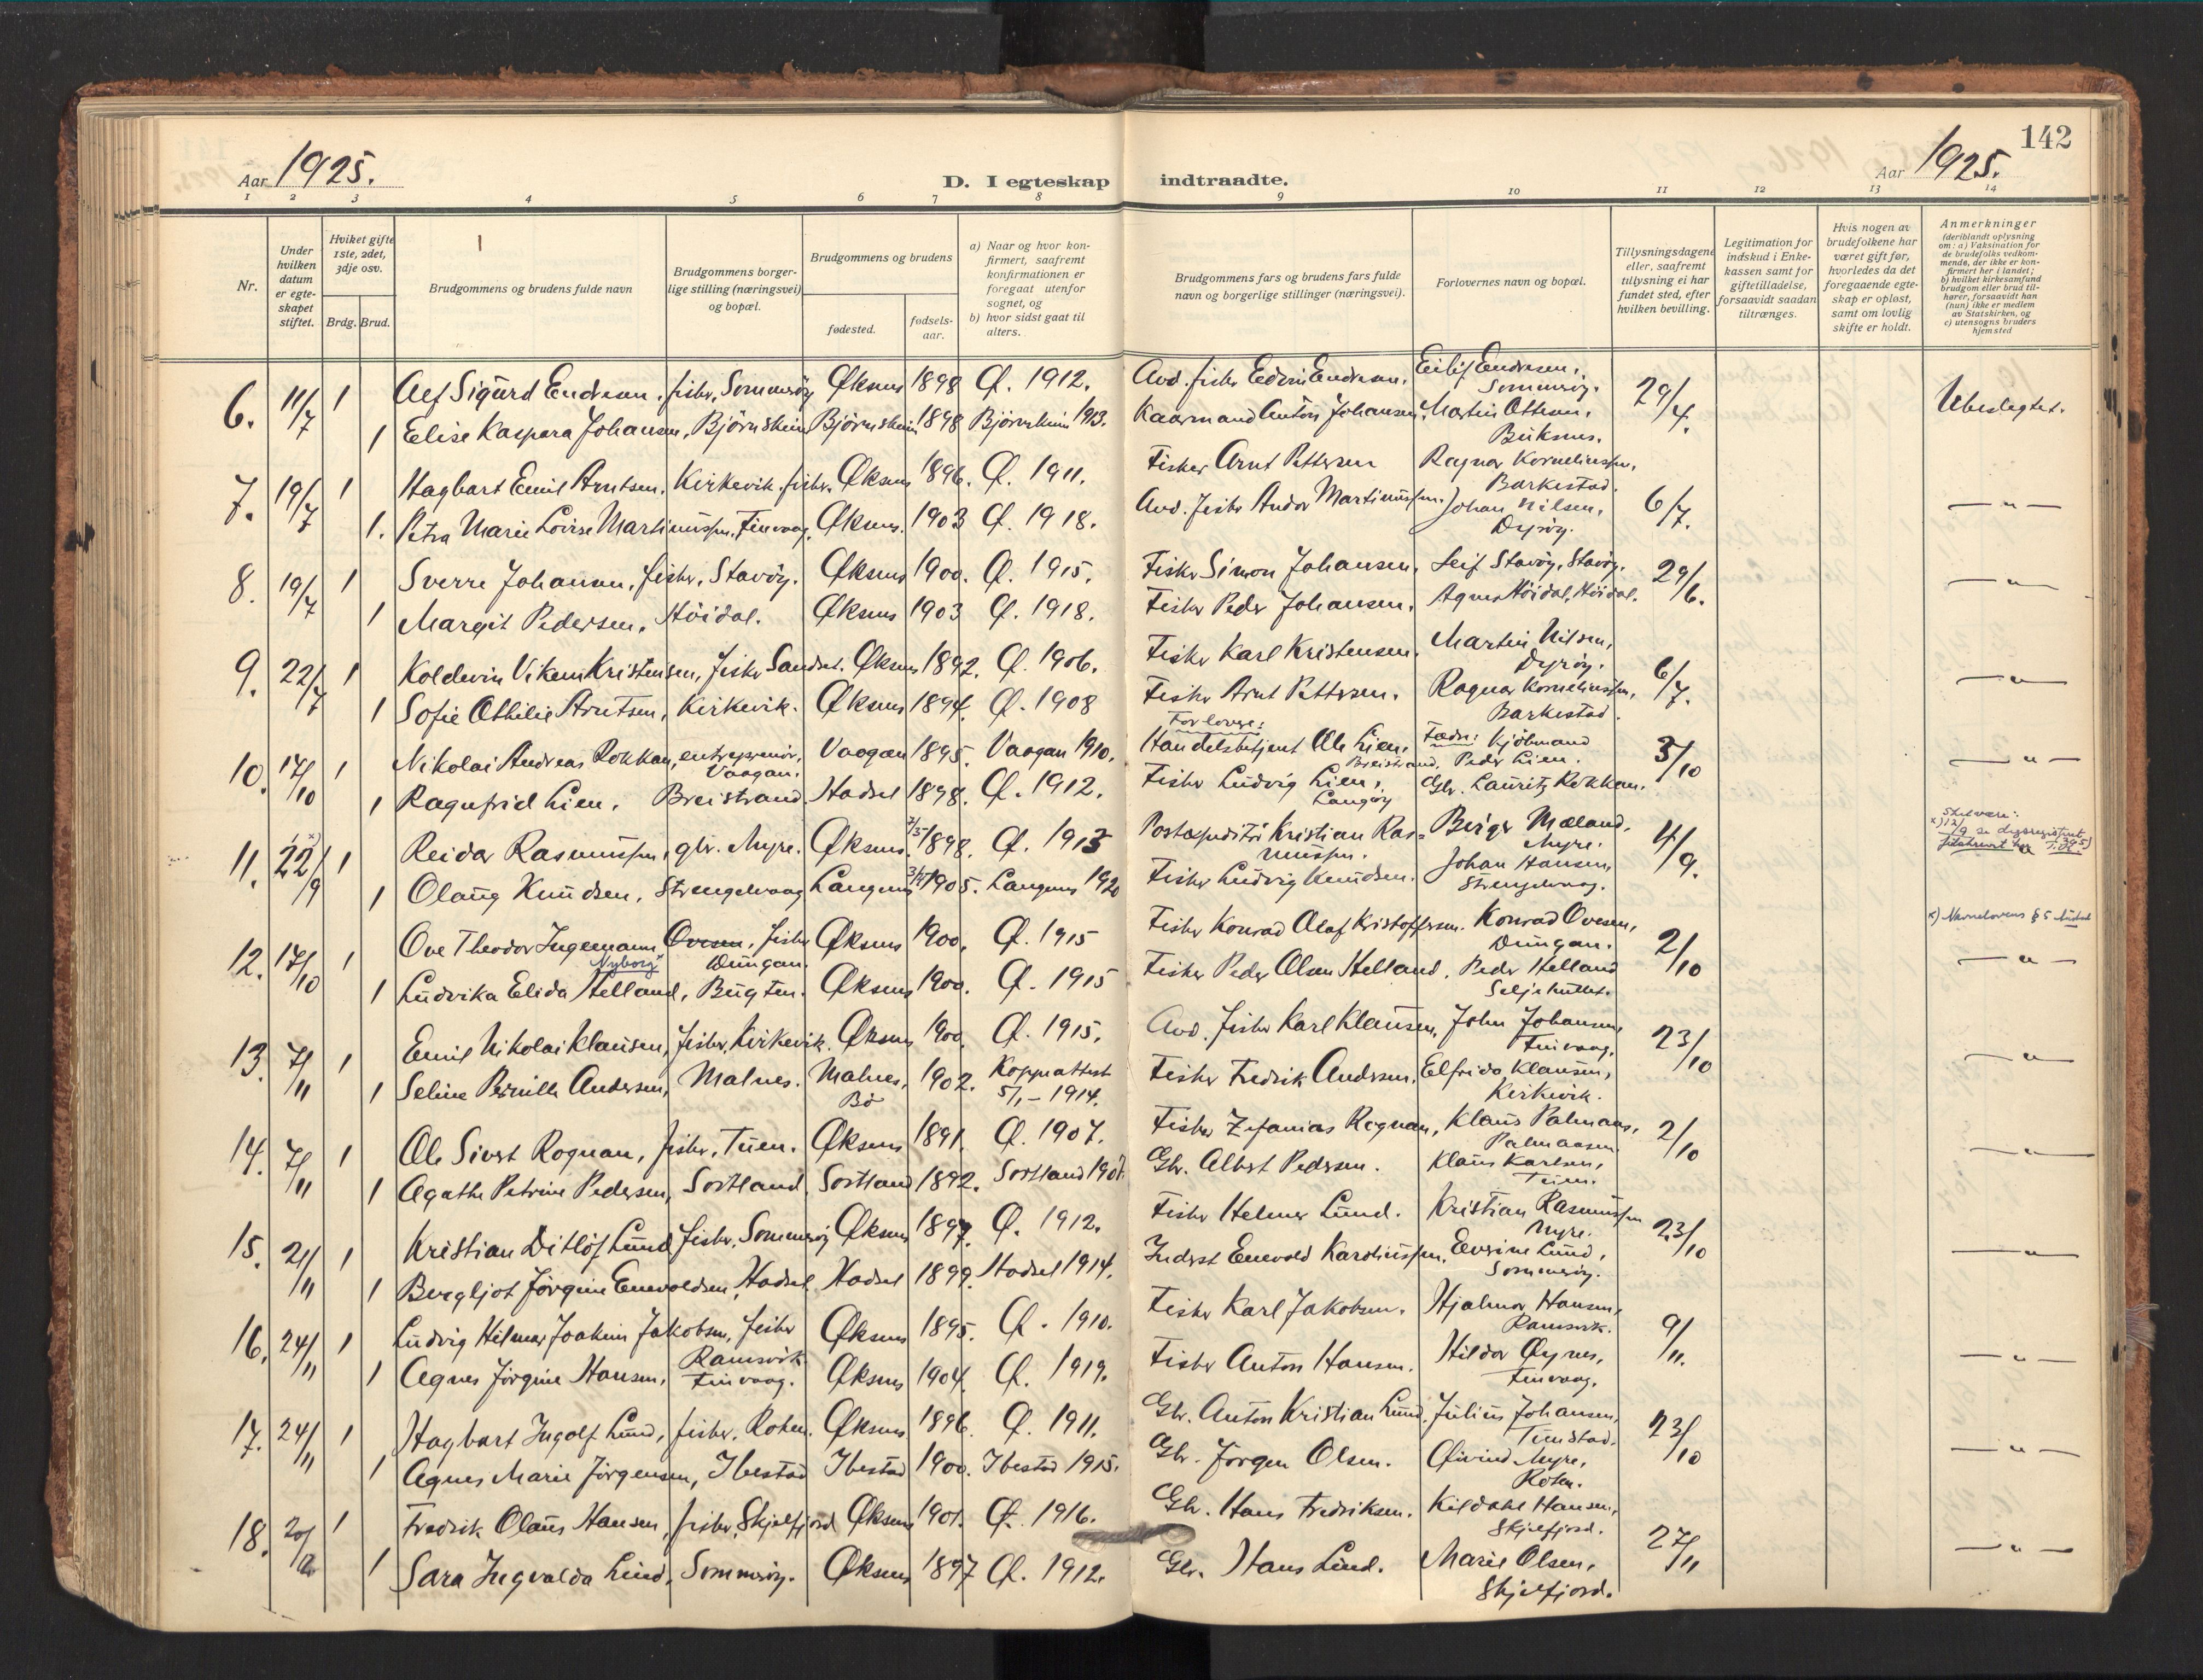 142
Aar 1925.
D. I egteskap indtraadte.
Aar 1925.
1 2 3 4 5 6 7 8 9 10 11 12 13 14
Nr.
Under
hvilken
datum
er egte-
skapet
stiftet.
Hviket gifte
1ste, 2det,
3dje osv.
Brdg. Brud.
Brudgommens og brudens fulde navn
Brudgommens borger-
lige stilling (næringsvei)
og bopæl.
Brudgommens og brudens
fødested.
fødsels-
aar.
a) Naar og hvor kon-
firmert, saafremt
konfirmationen er
foregaat utenfor
sognet, og
b) hvor sidst gaat til
alters.
Brudgommens fars og brudens fars fulde
navn og borgerlige stillinger (næringsvei).
Forlovernes navn og bopæl.
Tillysningsdagene
eller, saafremt
tillysning ei har
fundet sted, efter
hvilken bevilling.
Legitimation for
indskud i Enke-
kassen samt for
giftetilladelse,
forsaavidt saadan
tiltrænges.
Hvis nogen av
brudefolkene har
været gift før,
hvorledes da det
foregaaende egte-
skap er opløst,
samt om lovlig
skifte er holdt.
Anmerkninger
(deriblandt oplysning
om: a) Vaksination for
de brudefolks vedkom-
mende, der ikke er kon-
firmert her i landet;
b) hvilket kirkesamfund
brudgom eller brud til-
hører, forsaavidt han
(hun) ikke er medlem
av Statskirken, og
c) utensogns bruders
hjemsted
6. 11/7 1 Alf Sigurd Endresen, fisker, Sommerøy Øksnes 1898 Ø. 1912. Avd. fisker Edvin Endresen. Eilif Endresen, Sommerøy. 29/4. Ubeslegtet.
1 Elise Kaspara Johansen, Bjørnskin Bjørnskin 1898 Bjørnskin 1913. Kaarmand Anton Johansen. Martin Ottesen, Buksnes.
7. 19/7 1 Hagbart Emil Arntsen, Kirkevik. fisker. Øksnes 1896. Ø. 1911. Fisker Arnt Pettersen Ragnar Korneliussen, Barkestad. 6/7. — " —
1. Petra Marie Lovise Martinussen, Finvaag, Øksnes. 1903 Ø. 1918. Avd. fisker Andor Martinussen. Johan Nilsen, Dyrøy.
8. 19/7 1 Sverre Johansen, fisker, Stavøy. Øksnes 1900. Ø. 1915. Fisker Simon Johansen. Leif Stavøy, Stavøy. 29/6. — " —
1 Margit Pedersen, Høidal. Øksnes 1903 Ø. 1918. Fisker Peder Johansen. Agnes Høidal, Høidal.
9. 22/7 1 Koldevin Vikem Kristensen, fisker Sandset. Øksnes 1892. Ø. 1906. Fisker Karl Kristensen. Martin Nilsen, Dyrøy. 6/7. — " —
1 Sofie Othilie Arntsen, Kirkevik. Øksnes 1894. Ø. 1908 Fisker Arnt Pettersen. Ragnar Korneliussen, Barkestad.
10. 17/10 1 Nikolai Andreas Rokkan, entreprenør, Vaagan. Vaagan 1895. Vaagan 1910. Forlovere: Handelsbetjent Ole Lien, Breistrand. Fædre: Kjøbmand Peder Lien. 3/10 — " —
1 Ragnfrid Lien. Breistrand. Hadsel 1898. Ø. 1912. Fisker Ludvig Lien, Langøy Gbr. Lauritz Rokkan.
11. 22/9 1 Reidar Rasmussen, gbr. Myre. Øksnes. 7/5 1898. Ø. 1913 Postexpeditør Kristian Rasmussen. Birger Mæland, Myre. 4/9. Skal være: x) 12/9
1 Olaug Knudsen, Strengelvaag Langenes 1905. Langenes 1920 Fisker Ludvig Knudsen. Johan Hansen, Strengelvaag.
12. 17/10 1 Ove Theodor Ingemann Ovesen, fisker Nyborg Dungan. Øksnes 1900. Ø. 1915 Fisker Konrad Olaf Kristoffersen. Konrad Ovesen, Dungan. 2/10 x) Navnelovens § 5
— " —
1 Ludvika Elida Helland, Bugten. Øksnes 1900. Ø. 1915 Fisker Peder Olsen Helland. Peder Helland
13. 7/11 1 Emil Nikolai Klausen, fisker, Kirkevik. Øksnes 1900. Ø. 1915. Avd. fisker Karl Klausen. John Johansen, Finvaag. 23/10 — " —
1 Seline Pernille Andersen, Malnes. Malnes, Bø 1902. Koppeattest 5/1 – 1914. Fisker Fredrik Andersen. Elfrida Klausen, Kirkevik.
14. 7/11 1 Ole Sivert Rognan, fisker, Tuen. Øksnes 1891. Ø. 1907. Fisker Zefanias Rognan, Klaus Palmaas, Palmaasen 2/10 — " —
1 Agathe Petrine Pedersen, Sortland. Sortland 1892. Sortland 1907. Gbr. Albert Pedersen. Klaus Karlsen, Tuen.
15. 21/11 1 Kristian Ditløf Lund, fisker, Sommerøy Øksnes 1897. Ø. 1912. Fisker Helmer Lund. Kristian Rasmussen Myre. 23/10 — " —
1 Bergljot Jørgine Enevoldsen, Hadsel Hadsel 1899. Hadsel 1914. Inderst Enevold Karoliussen. Evine Lund, Sommerøy.
16. 24/11 1 Ludvig Hilmar Joakim Jakobsen, fisker Ramsvik Øksnes 1895. Ø. 1910. Fisker Karl Jakobsen. Hjalmar Hansen, Ramsvik. 9/11. — " —
1 Agnes Jørgine Hansen, Finvaag. Øksnes 1904. Ø. 1919. Fisker Anton Hansen. Hilda Øynes, Finvaag.
17. 24/11 1 Hagbart Ingolf Lund, fisker. Roten. Øksnes 1896. Ø. 1911. Gbr. Anton Kristian Lund. Julius Johansen, Tunstad. 23/10 — " —
1 Agnes Marie Jørgensen, Ibestad Ibestad 1900. Ibestad 1915. Gbr. Jørgen Olsen. Øivind Myre, Roten.
18. 20/12 1 Fredrik Olaus Hansen, fisker, Skjelfjord Øksnes 1901. Ø. 1916. Gbr. Hans Fredriksen. Kildahl Hansen, Skjelfjord. 27/11 — " —
1 Sara Ingvalda Lind, Sommerøy. Øksnes 1897 Ø. 1912. Gbr. Hans Lind. Marie Olsen, Skjelfjord.